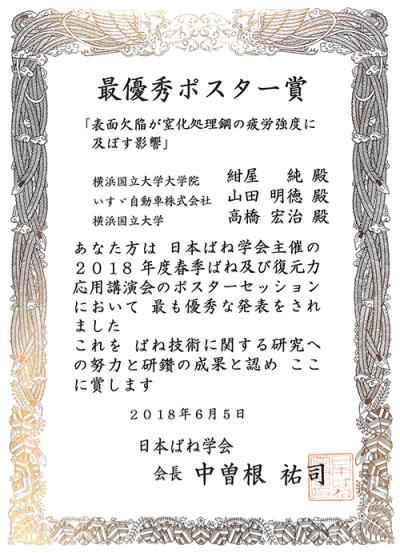 最優秀ポスター賞
「表面欠陥が窒化処理鋼の疲労強度に
及ぼす影響」
横浜国立大学大学院 紺屋 純 殿
いすゞ自動車株式会社 山田 明徳 殿
横浜国立大学 高橋 宏治 殿
あなた方は 日本ばね学会主催の
2018年度春季ばね及び復元力
応用講演会のポスターセッション
において 最も優秀な発表をされ
ました
これを ばね技術に関する研究へ
の努力と研鑽の成果と認め ここ
に賞します
2018年6月5日
日本ばね学会
会長 中曽根 祐司